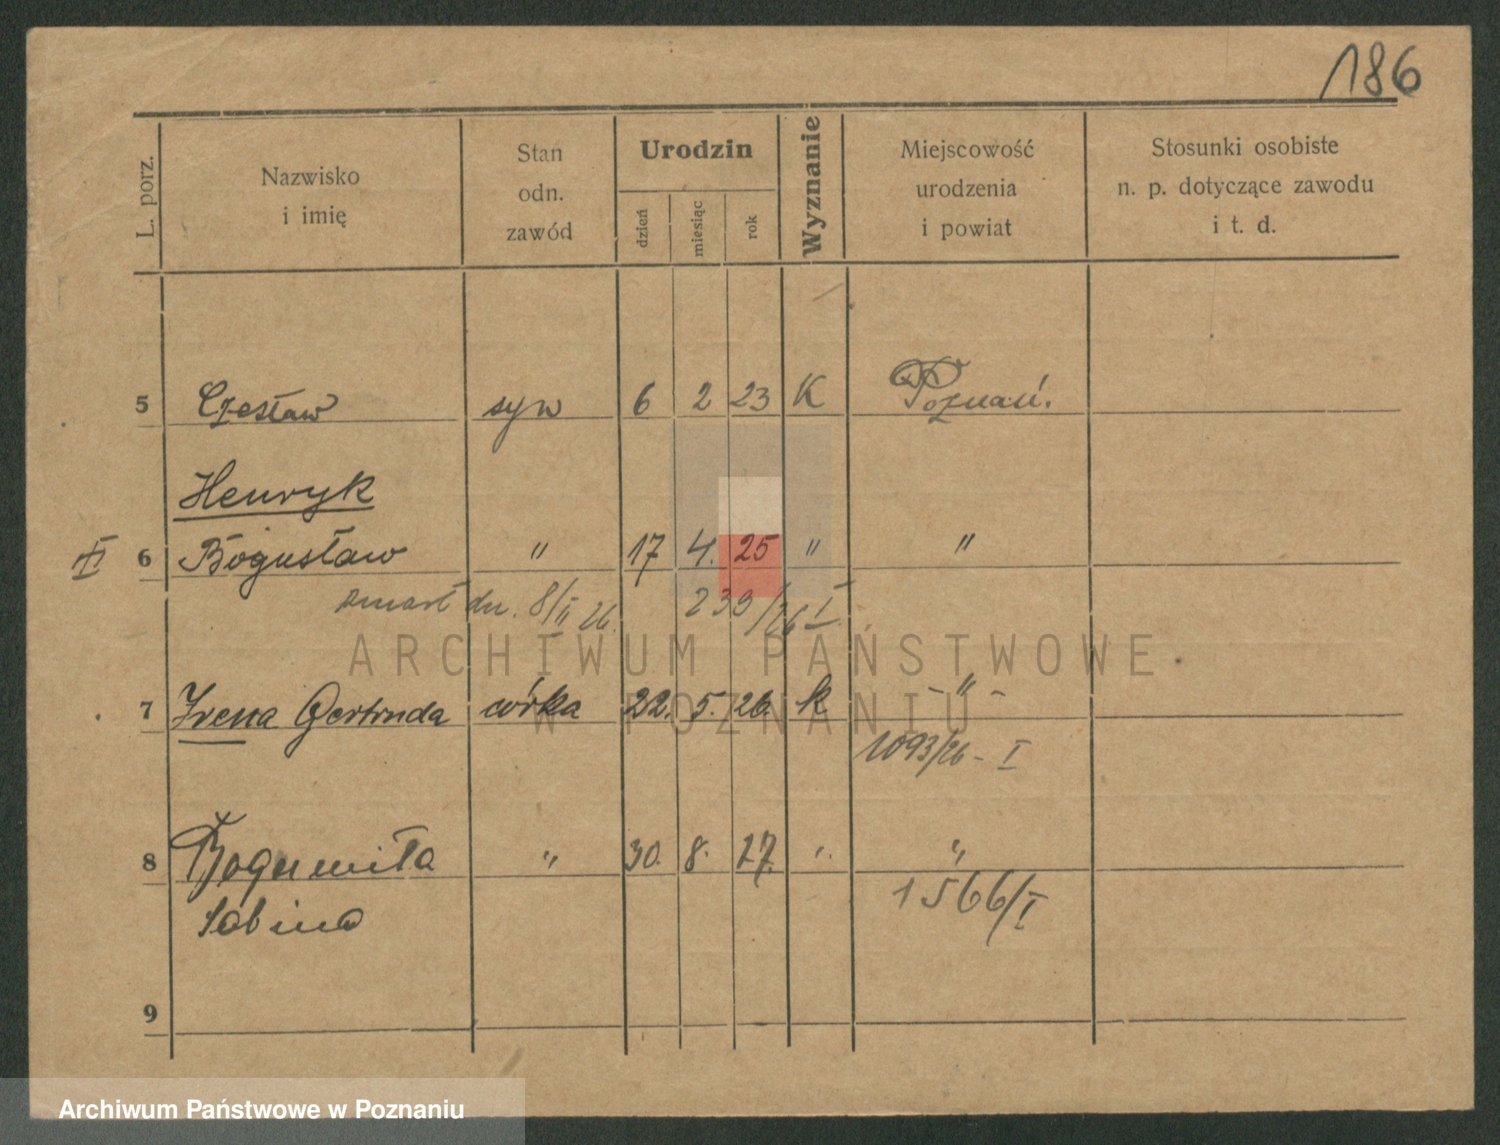 186
L. porz.
Nazwisko
i imię
Stan
odn.
zawód
Urodzin
dzień
miesiąc
rok
Wyznanie
Miejscowość
urodzenia
i powiat
Stosunki osobiste
n. p. dotyczące zawodu
i t. d.
5 Czesław syn 6 2 23 K Poznań.
Henryk
6 Bogusław " 17 4. 25 " "
zmarł dn. 8/II 26. 239/26 I
ARCHIWUM PAŃSTWOWE
W POZNANIU
7 Irena Gertruda córka 22. 5. 26. k - " -
1093/26 - I
8 Bogumiła " 30. 8. 27. " "
Sabina 1566/I
9
Archiwum Państwowe w Poznaniu